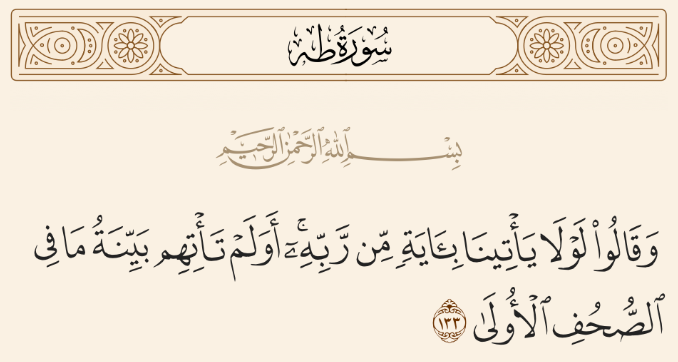 سُورَةُ طه
بِسْمِ ٱللَّهِ ٱلرَّحْمَٰنِ ٱلرَّحِيمِ
وَقَالُوا۟ لَوْلَا يَأْتِينَا بِـَٔايَةٍ مِّن رَّبِّهِۦٓ ۚ أَوَلَمْ تَأْتِهِم بَيِّنَةُ مَا فِى
ٱلصُّحُفِ ٱلْأُولَىٰ ١٣٣